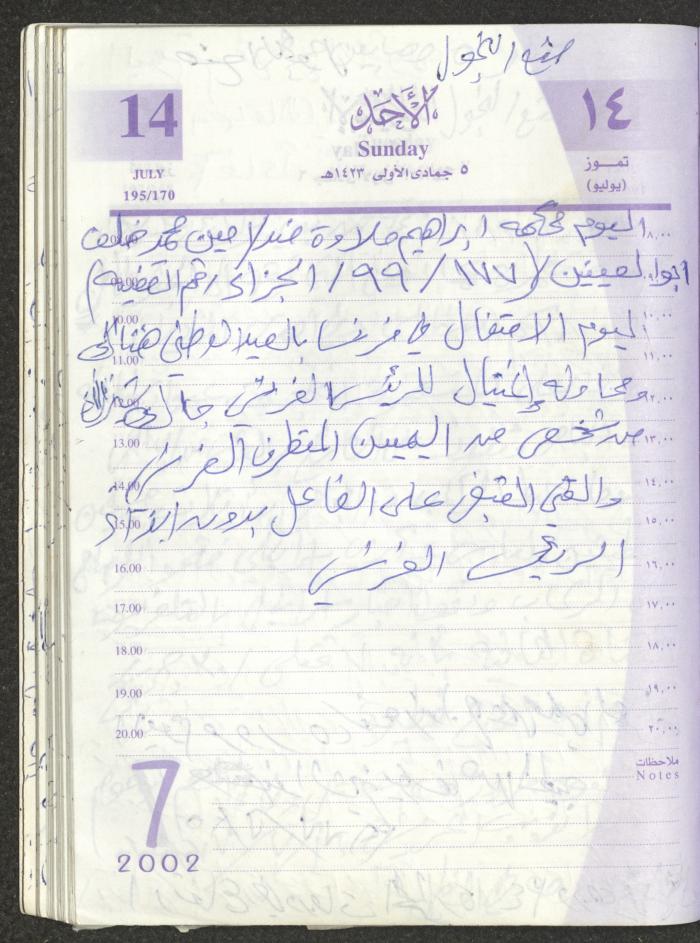 منع التجول
14
الأحد
١٤
Sunday
JULY
٥ جمادى الأولى ١٤٢٣هـ
تمـوز
195/170
(يوليو)
اليوم محكمة ابراهيم حلاوة ضد امين محمد خلف ٨,٠٠
ابو العينين (١٧٧ / ٩٩ / الجزائى رقم القضية) 09.00
10.00 ١٠,٠٠
اليوم الاحتفال في فرنسا بالعيد الوطني هنالك
11.00 ١١,٠٠
ومحاولة إغتيال للرئيس الفرنسي جاك شيراك ١٢,٠٠
من شخص من اليمين المتطرف الفرنسي 13.00 ١٣,٠٠
14.00 ١٤,٠٠
والقي القبض على الفاعل بدون ايذاء
15.00 ١٥,٠٠
الرئيس الفرنسي
16.00 ١٦,٠٠
17.00 ١٧,٠٠
18.00 ١٨,٠٠
19.00 ١٩,٠٠
20.00 ٢٠,٠٠
ملاحظات
Notes
7
2002